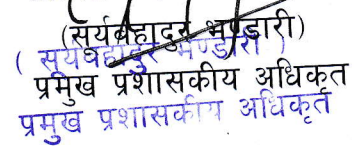 (सूर्यबहादुर भण्डारी)
( सूर्यबहादुर भण्डारी )
प्रमुख प्रशासकीय अधिकृत
प्रमुख प्रशासकीय अधिकृत